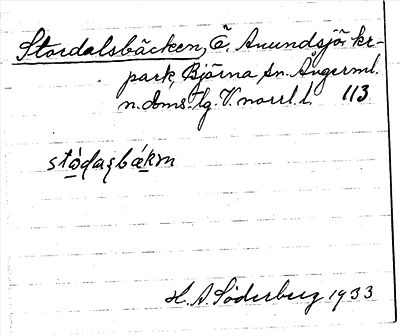 Stordalsbäcken, Ö. Anundsjö kr-
park, Björna sn. Ångerml.
n. doms. lg. V. norrl. l. 113
stódaʂbäkm
H. A. Söderberg 1933